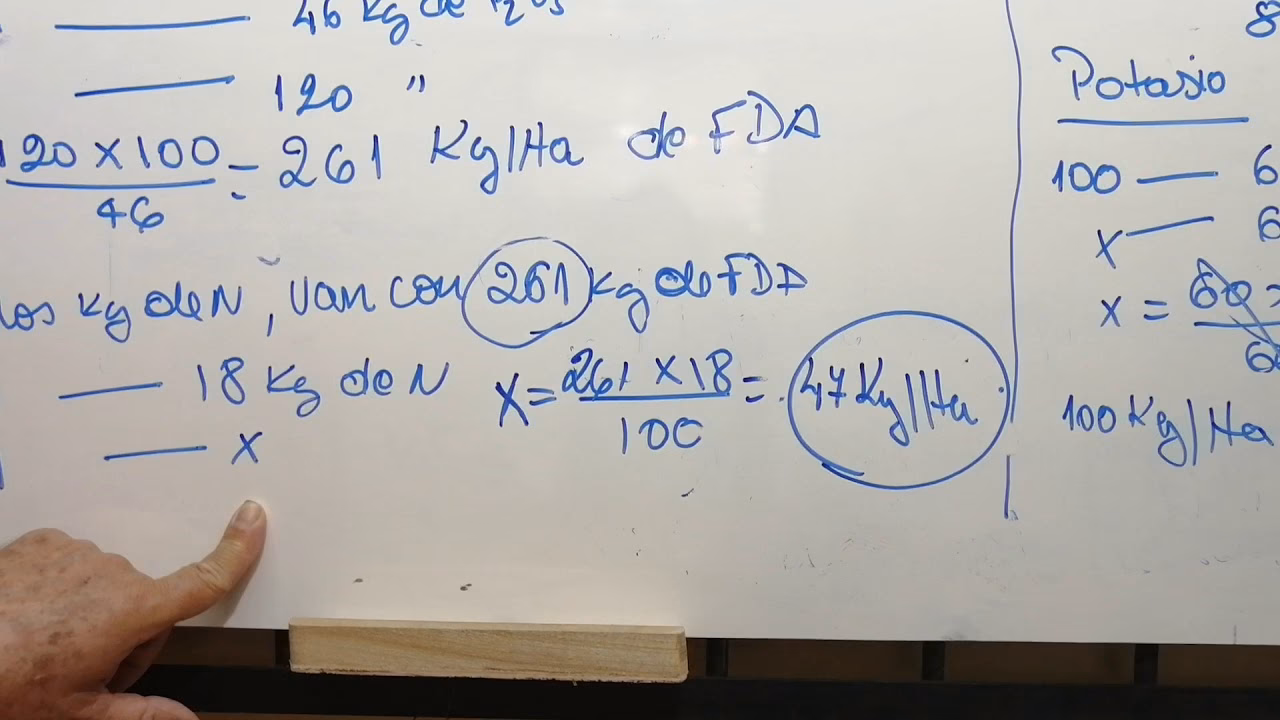 46 Kg de P2O5
120 "
120 x 100 = 261 Kg/Ha de FDA
46
los Kg de N, van con 261 Kg de FDA
18 Kg de N
X = 261 x 18 = 47 Kg/Ha
100
X
8
Potasio
100 — 6
X — 6
X = 60
6
100 Kg/Ha